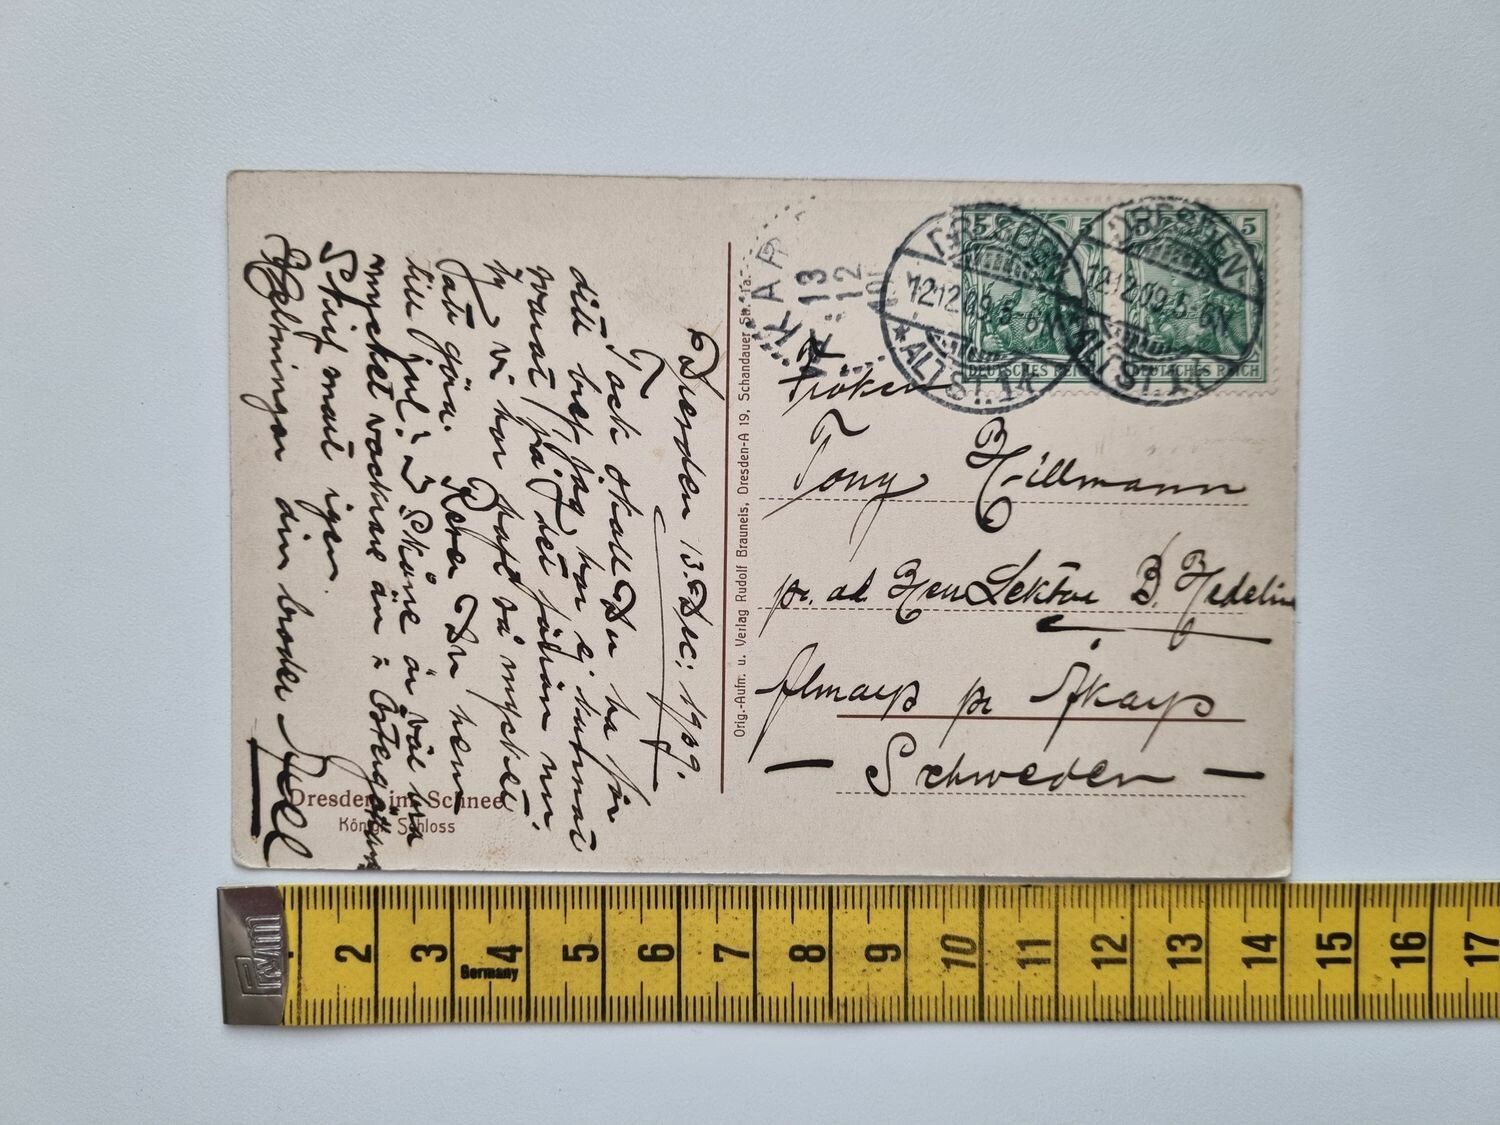 Dresden 13. Dec; 1909.
Tack skall Du ha för
ditt bref jag har ej hunnit
svarat på det förrän nu,
ty vi har haft så mycket
att göra. Reser Du hem
till jul? Skåne är väl
mycket vackrare än Östergötland
Skrif snart igen.
Hälsningar din broder
Dresden im Schnee
Königl. Schloss
Orig.-Aufn. u. Verlag Rudolf Brauneis, Dresden-A 19, Schandauer Str.
KARP
13
12
DRESDEN
12.12.09.5-6N
* ALTST. 14
DRESDEN
12.12.09.5-6N
ALTST. 14
5 5
DEUTSCHES REICH
5 5
DEUTSCHES REICH
Fröken
Tony Hillmann
pr. ad. Herr Lektor B. Hedelin
Alnarp pr Åkarp
— Schweden —
Prym
Germany
2 3 4 5 6 7 8 9 10 11 12 13 14 15 16 17